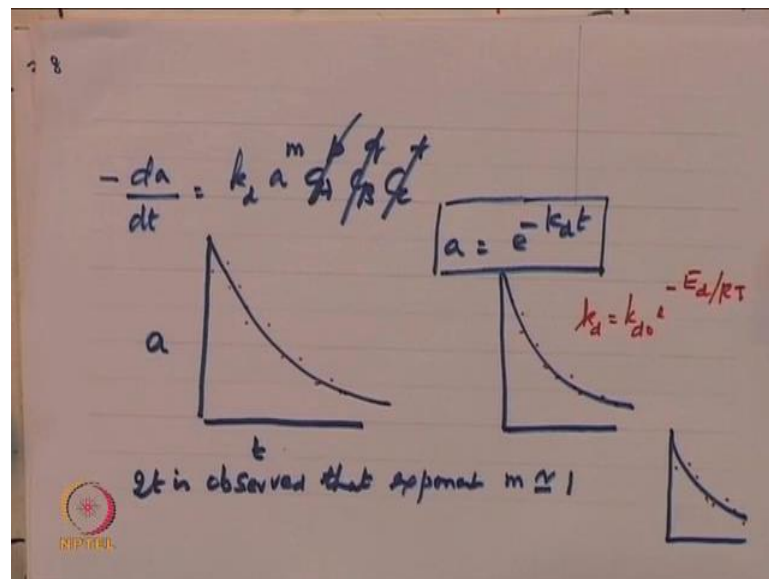 = 8
- da/dt = k_d a^m C_A^p C_B^q C_C^r
a = e^{-k_d t}
k_d = k_{d0} e^{-E_d/RT}
a
t
It is observed that exponent m ≅ 1
NPTEL